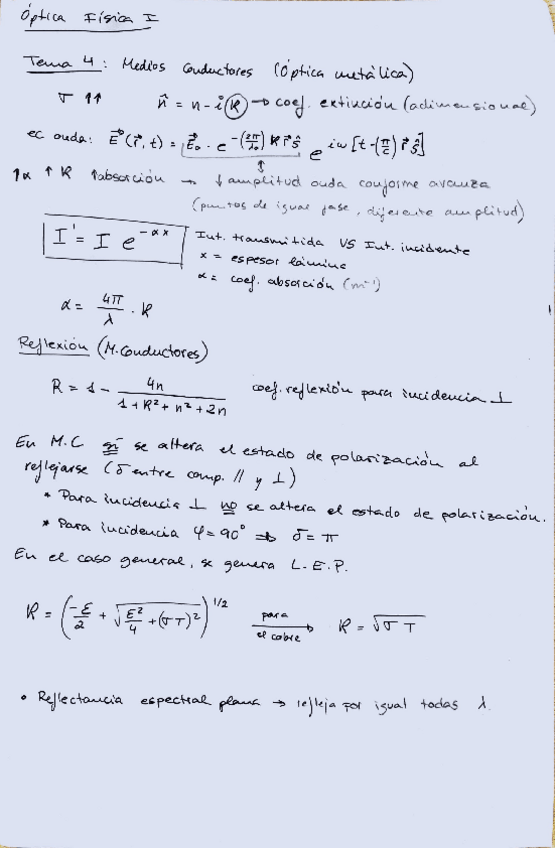 Óptica Física I
Tema 4: Medios Conductores (Óptica metálica)
σ ↑↑ n̂ = n - i K → coef. extinción (adimensional)
ec onda: E⃗(r⃗, t) = E⃗₀ · e^{-(2π/λ₀) K r⃗ ŝ} e^{iω[t-(n/c) r⃗ ŝ]}
↑α ↑ K ↑absorción → ↓ amplitud onda conforme avanza
(puntos de igual fase, diferente amplitud)
I' = I e^{-αx} Int. transmitida VS Int. incidente
x = espesor lámina
α = coef. absorción (m⁻¹)
α = 4π/λ · K
Reflexión (M. Conductores)
R = 1 - 4n/(1 + K² + n² + 2n) coef. reflexión para incidencia ⊥
En M.C sí se altera el estado de polarización al
reflejarse (δ entre comp. // y ⊥)
* Para incidencia ⊥ no se altera el estado de polarización.
* Para incidencia φ = 90° ⇒ δ = π
En el caso general, se genera L.E.P.
K = (-ε/2 + √(ε²/4 + (σT)²))^{1/2} para el cobre → K = √(σT)
• Reflectancia espectral plana → refleja por igual todas λ